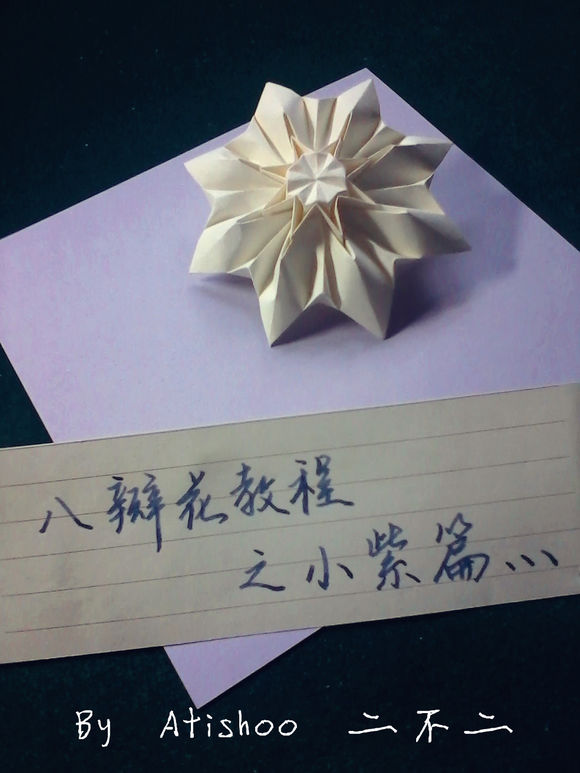 八瓣花教程
之小紫篇、、、
By Atishoo 二不二